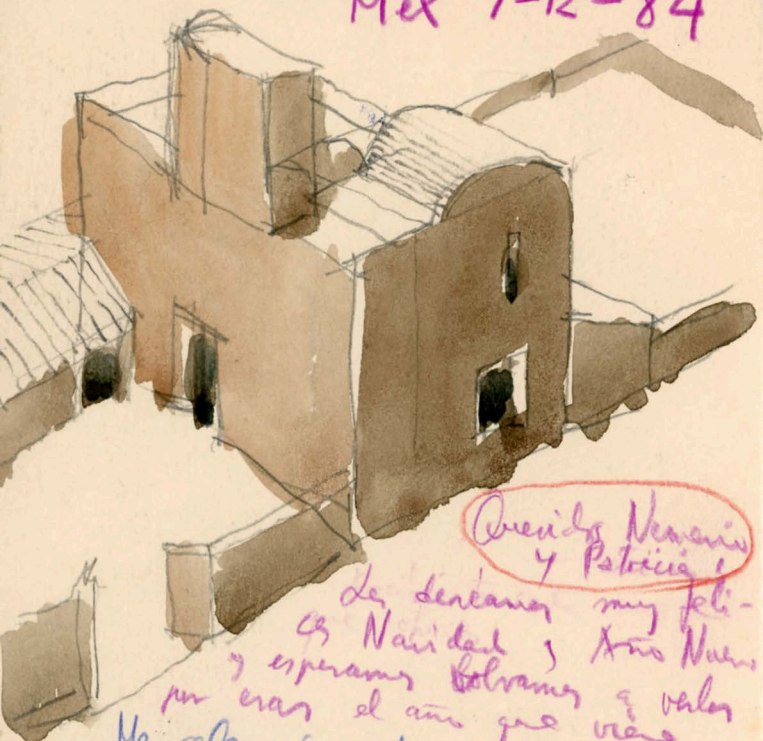 Mex 7-12-84
Queridos Nemesio
y Patricia,
Les deseamos muy feli-
ces Navidad y Año Nuevo
y esperamos bolvamos a verlos
por esas el año que viene